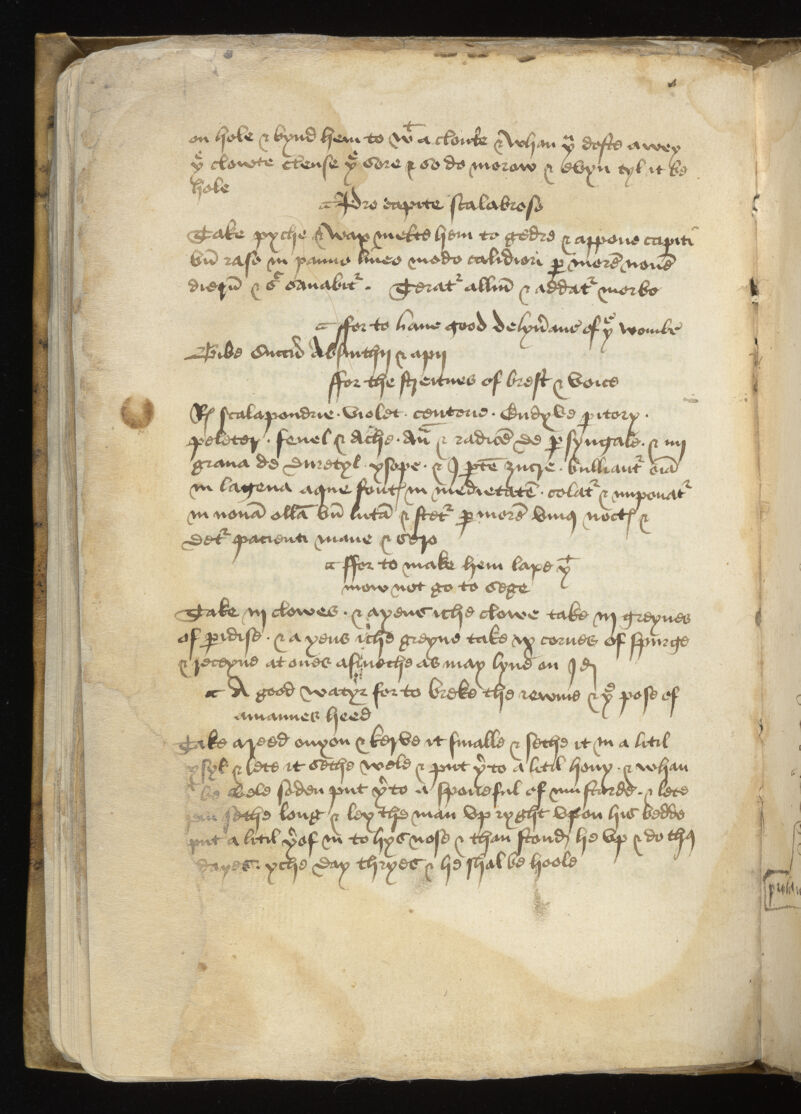 on hole & bynd hem to wt a cloute & whan þu doste awey
þe clowte clense þe sore & so do morow & evyn tyl it be
hole
Pro capite scalabroso
Take pyche & wax melte hem to gedre & appone capiti
bn̄ raso in panno lineo modo calidiori per morē nouē
dierū & sanabitr. Teratr alliū & addatr morbo
ffor to haue good delyūaūs of þe wombe
Bibe succū Absinthij & apij
ffor the streitnes of brest & voice
R scalapendrie . violet . centorie . Endyve peritory .
peletor . fenel & Ache . an̄ & radicē de persyngale . & iiij
grana de duretyl . ysope . & j ptē zucre . bulliantr oīa
in lagena aque font in medietatē . colatr & imponatr
in nouā ollā bn̄ lutā & stetr per morē vniꝰ noct &
detr pacienti mane & sero
ffor to make hem laxe þt
mow not go to sege
Take iij clowes . & ayens iche clowe take iij greynes
of peradise . & ayens iche greyne take v cornes of spurge
& receyue at ones asmoche as may lyue on j d
A good watyr for to breke the rewme & þe pose of
a mannes heed
Take a reed onyon & kerve it smalle & sethe it in a litil
& lete it sethe wele & put þrto a litil hony . & whan
be wele soden put þrto a sponeful of mustarde . & lete
sethe long & ley the man vp ryght vpon his bedde
put a litil þrof in to hys nose & than stond he vp & do thꝰ
dayes . yche day thryes & he shal be hoole